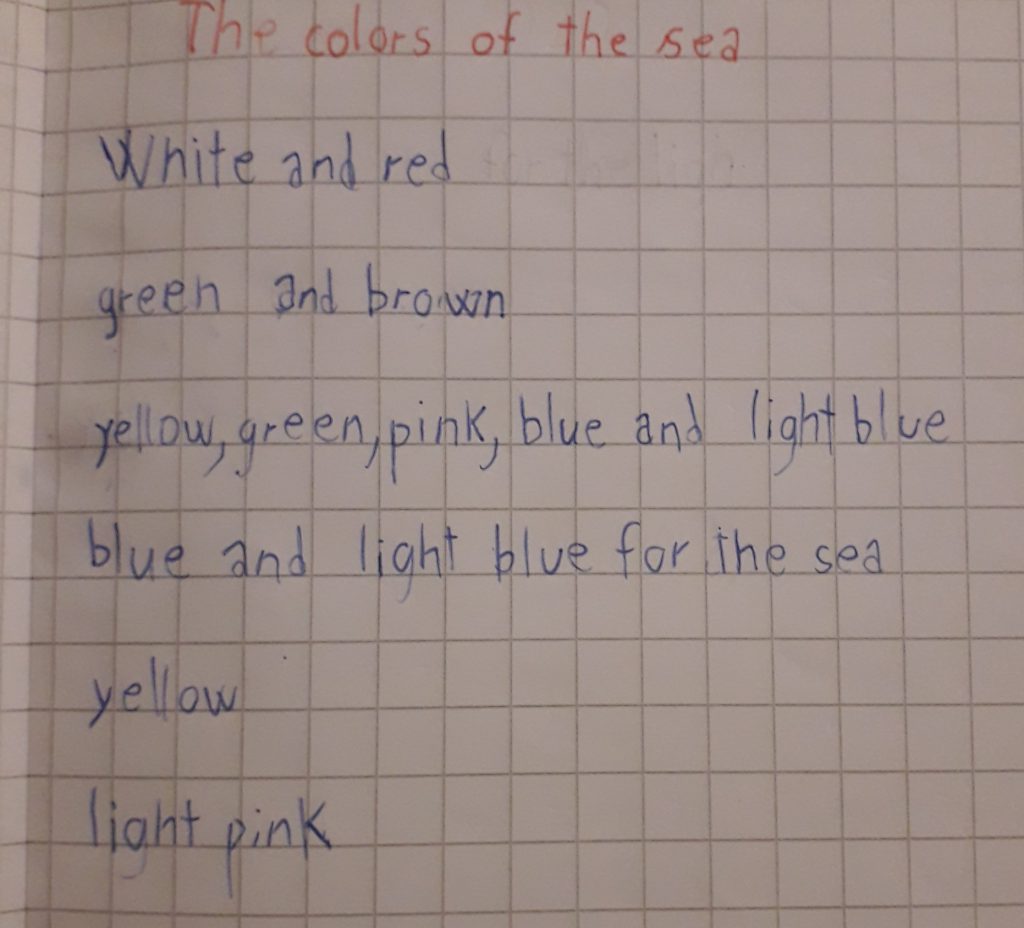 The colors of the sea
White and red
green and brown
yellow, green, pink, blue and light blue
blue and light blue for the sea
yellow
light pink